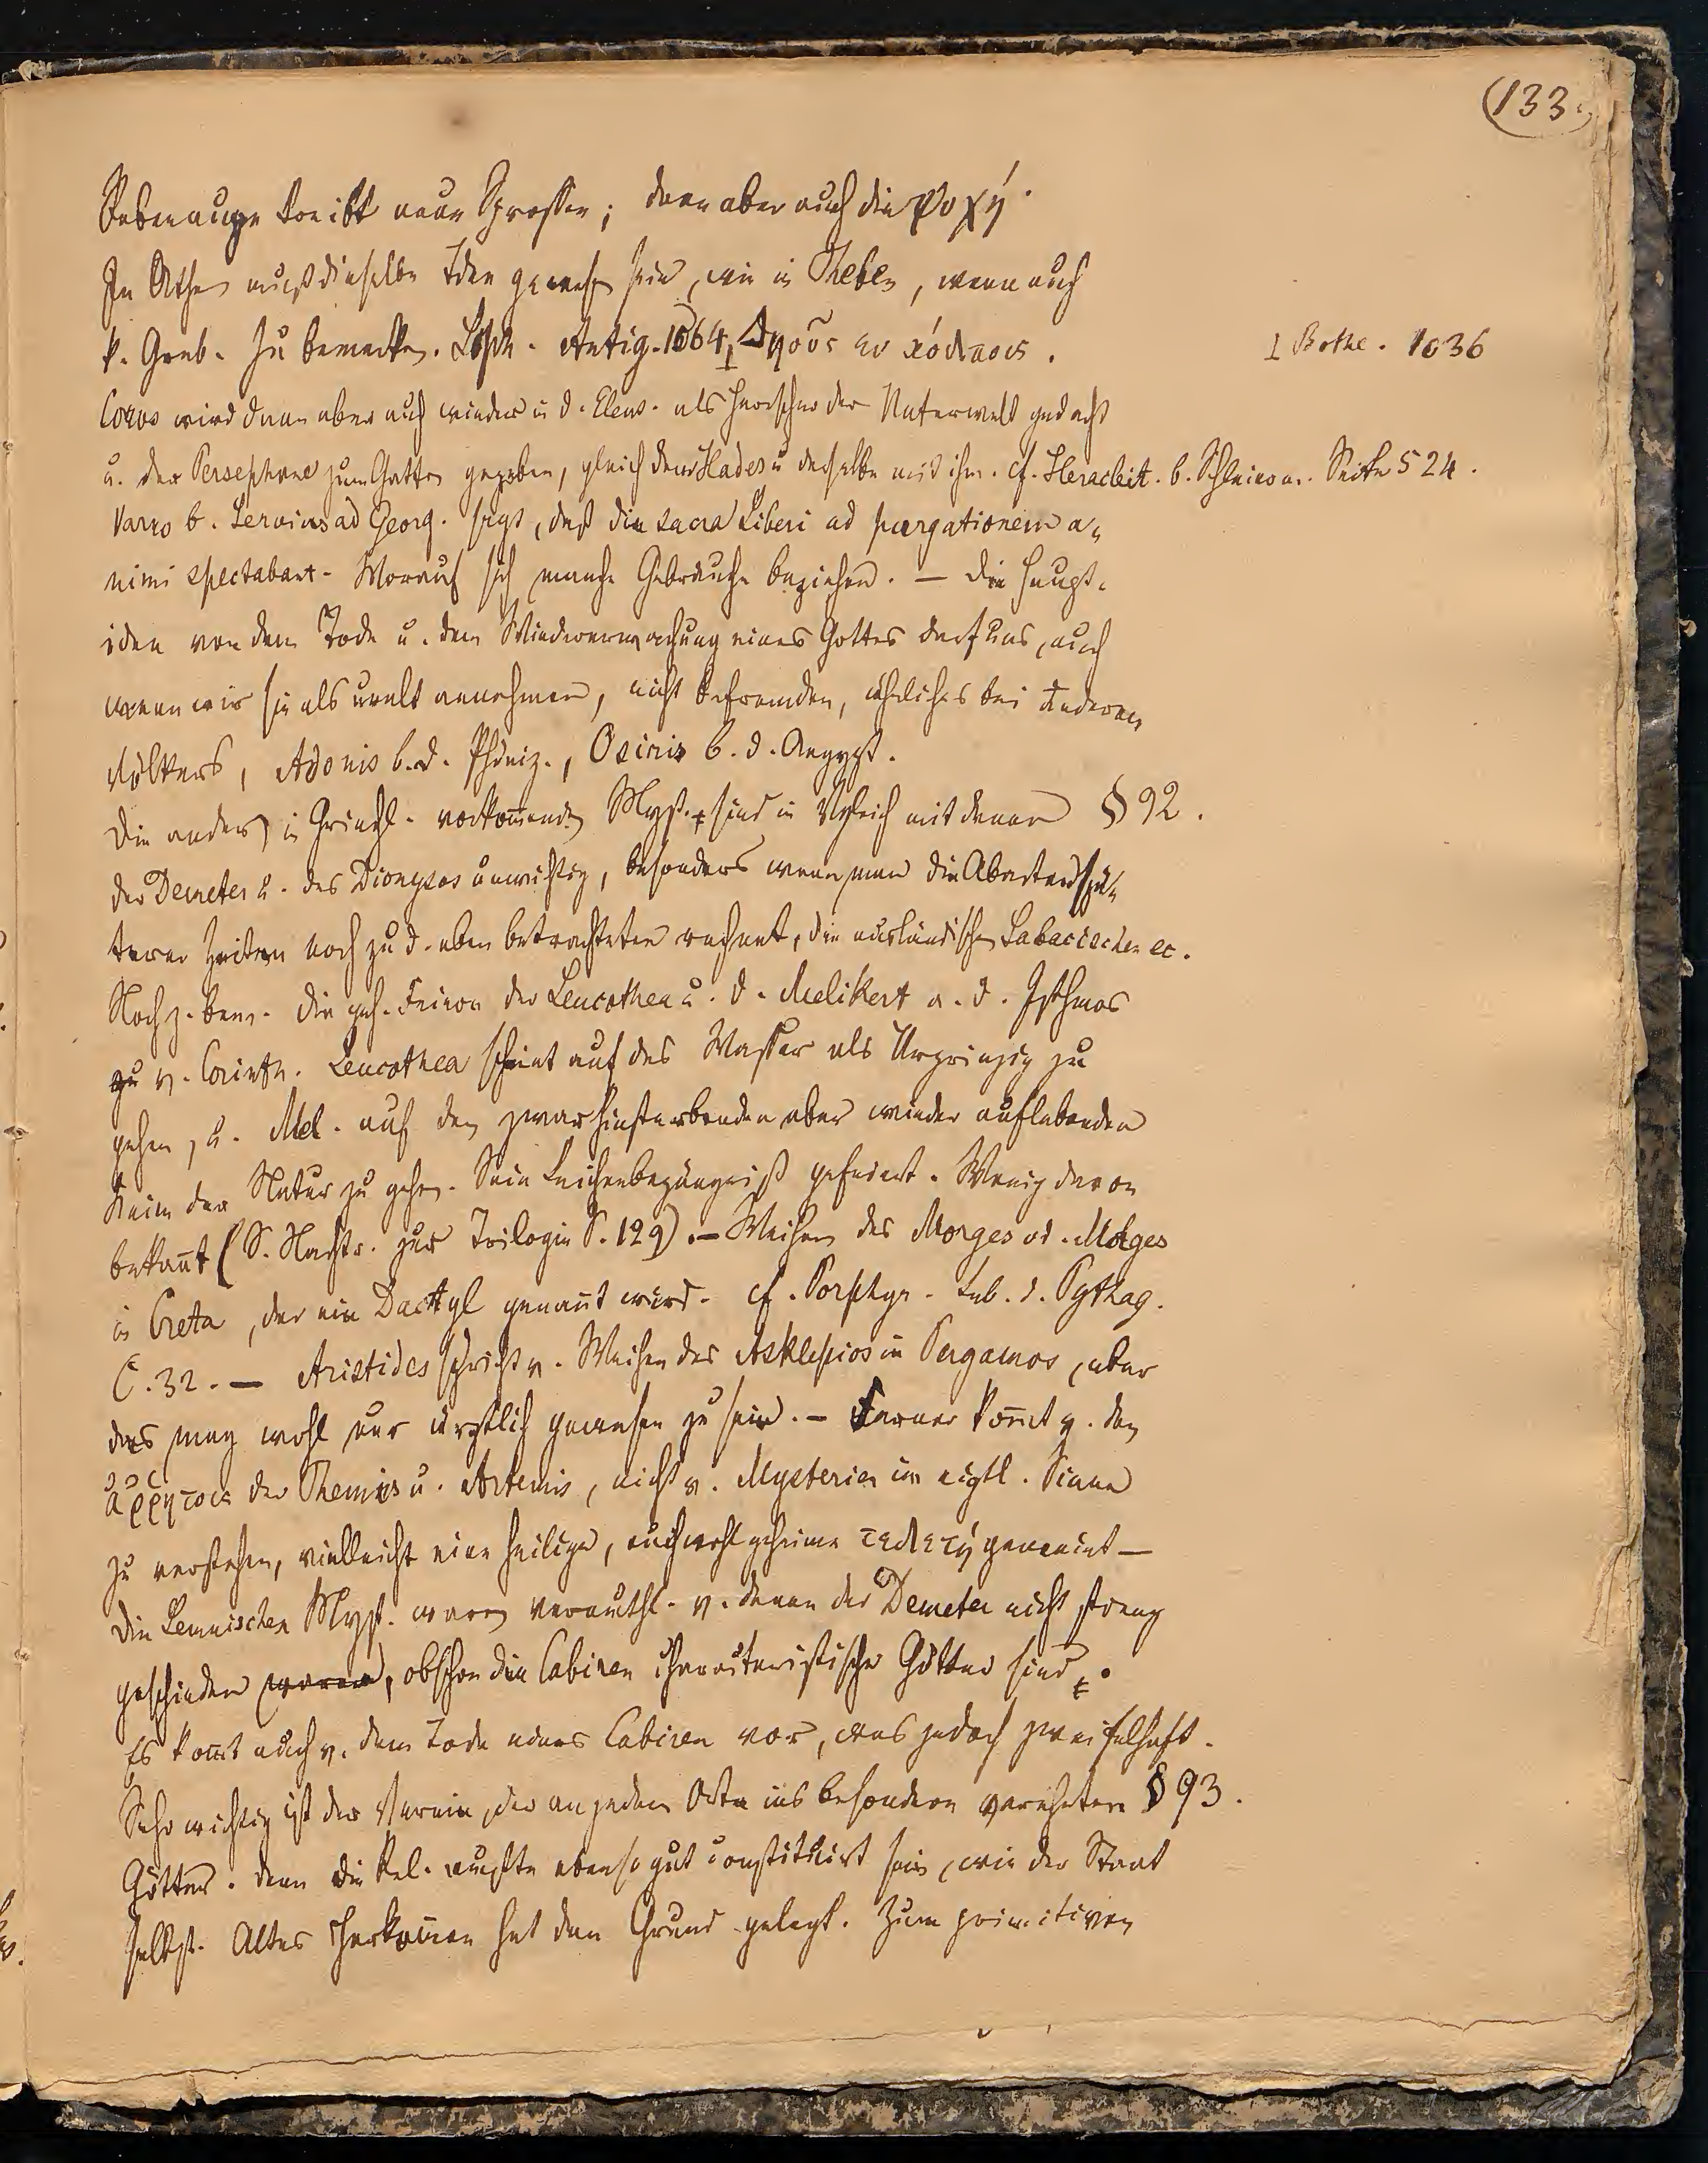 (133.)
Rebenauge treibt neue Sprossen; dann aber auch die ψυχή.
In Athen muß dieselbe Idee gewesen sein, wie in Theben, wenn auch
k. Grab. Zu bemerken. Soph. Antig. 1064, Δηοῦς ἐν κόλποις.
⊥ Bothe. 1036
Coros wird dann aber auch wieder in d. Eleus. als Herrscher der Unterwelt gedacht
u. der Persephone zum Gatten gegeben, gleich dem Hades u. derselbe mit ihm. cf. Heracleit. b. Schleierm. Seite 524.
Varro b. Servius ad Georg. sagt, daß die sacra Liberi ad purgationem a-
nimi spectabant. Worauf sich manche Gebräuche beziehen. — Die Haupt-
idee von dem Tode u. dem Wiedererwachung eines Gottes darf uns, auch
wenn wir sie als uralt annehmen, nicht befremden, ähnliches bei anderen
Völkern, Adonis b. d. Phöniz., Osiris b. d. Aegypt.
Die andern in Griechl. vorkommenden Myst. sind in Vgleich mit denen § 92.
der Demeter u. des Dionysos unwichtig, besonders wenn man die Abarten spä-
terer Zeiten noch zu d. eben betrachteten rechnet, die ausländischen Sabacischen ec.
Noch z. bem. die geh. Feier der Leucothea u. d. Melikert a. d. Isthmos
v. Corinth. Leucothea scheint auf das Wasser als Urprinzip zu
gehen, u. Mel. auf den zwar hinsterbenden aber wieder auflebenden
Keim der Natur zu gehen. Sein Leichenbegängniß gefeiert. Wenig davon
bekannt (S. Nachtr. zur Trilogie S. 129). — Weihen des Morges od. Molges
in Creta, der ein Dactyl genannt wird. cf. Porphyr. Leb. d. Pythag.
C. 32. — Aristides spricht v. Weihen des Asklepios in Pergamos, aber
das mag wohl nur ärztlich gewesen zu sein. — Ferner kommt v. den
ἀῤῥήτοις der Themis u. Artemis, nicht v. Mysterien im eigtl. Sinne
zu verstehen, vielleicht eine heilige, auch wohl geheime τελετή gemeint —
Die Lemnischen Myst. waren vermuthl. v. denen der Demeter nicht streng
geschieden waren, obschon die Cabiren characteristische Götter sind.
Es kommt auch v. dem Tode eines Cabiren vor, was jedoch zweifelhaft.
Sehr wichtig ist der Verein, der an jedem Orte ins besondere verehrten § 93.
Götter. denn die Rel. mußte ebenso gut constituirt sein, wie der Staat
selbst. Altes Herkommen hat den Grund gelegt. Zum primitiven